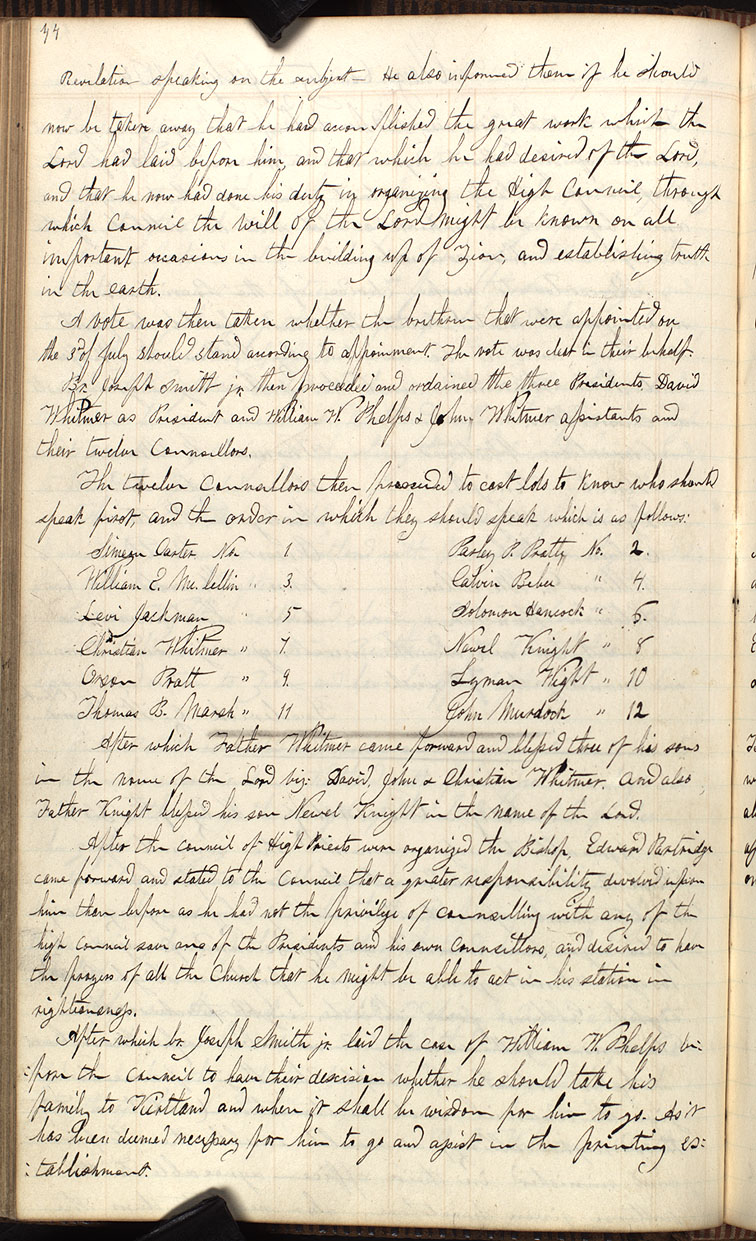 44
Revelation speaking on the subject— He also informed them if he should
now be taken away that he had accomplished the great work which the
Lord had laid before him, and that which he had desired of the Lord,
and that he now had done his duty in organizing the High Council, through
which Council the will of the Lord might be known on all
important occasions in the building up of Zion, and establishing truth
in the earth.
A vote was then taken whether the brethren that were appointed on
the 3d of July should stand according to appoinment. The vote was clear in their behalf.
Br. Joseph Smith jr. then proceeded and ordained the three Presidents, David
Whitmer as President and William W. Phelps & John Whitmer assistants and
their twelve Counsellors.
The twelve Counsellors then proceeded to cast lots to know who should
speak first, and the order in which they should speak which is as follows:
Simeon Carter No. 1 Parley P. Pratt, No. 2.
William E. Mc.lellin " 3. Calvin Bebee " 4.
Levi Jackman " 5 Solomon Hancock " 6.
Christian Whitmer " 7. Newel Knight " 8
Orson Pratt " 9. Lyman Wight " 10
Thomas B. Marsh " 11 John Murdock " 12
After which Father Whitmer came forward and blessed three of his sons
in the name of the Lord viz: David, John & Christian Whitmer. And also,
Father Knight blessed his son Newel Knight in the name of the Lord.
After the council of High Priests were organized the Bishop, Edward Partridge
came forward and stated to the Council that a greater responsibility devolved upon
him than before as he had not the privilege of counselling with any of the
high council save one of the Presidents and his own counsellors, and desired to have
the prayers of all the Church that he might be able to act in his station in
righteousness.
After which br. Joseph Smith jr. laid the case of William W. Phelps be:
:fore the Council to have their descision whether he should take his
family to Kirtland and when it shall be wisdom for him to go. As it
has been deemed necessary for him to go and assist in the printing es:
:tablishment.